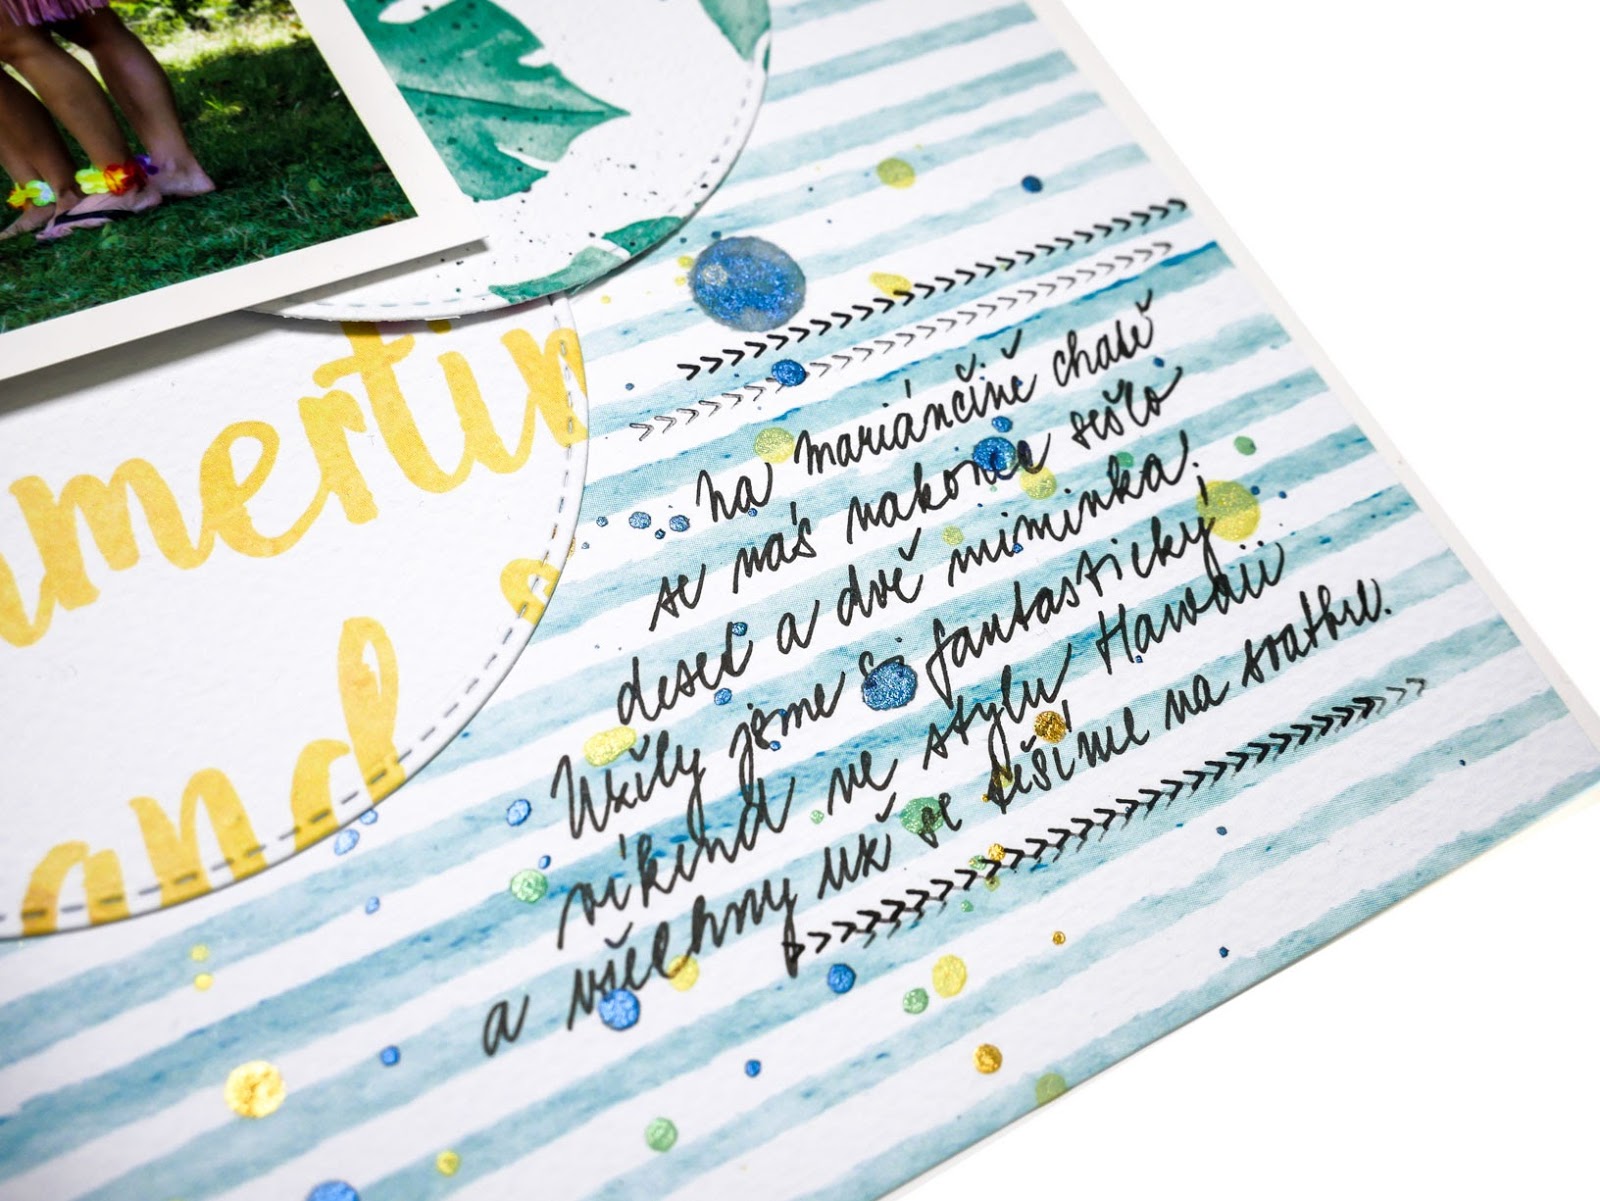 mertim
and
... na mariánčině chatě
se nás nakonec sešlo
deset a dvě miminka!
Užily jsme si fantastický
víkend ve stylu Hawaii
a všechny už se těšíme na svatbu.